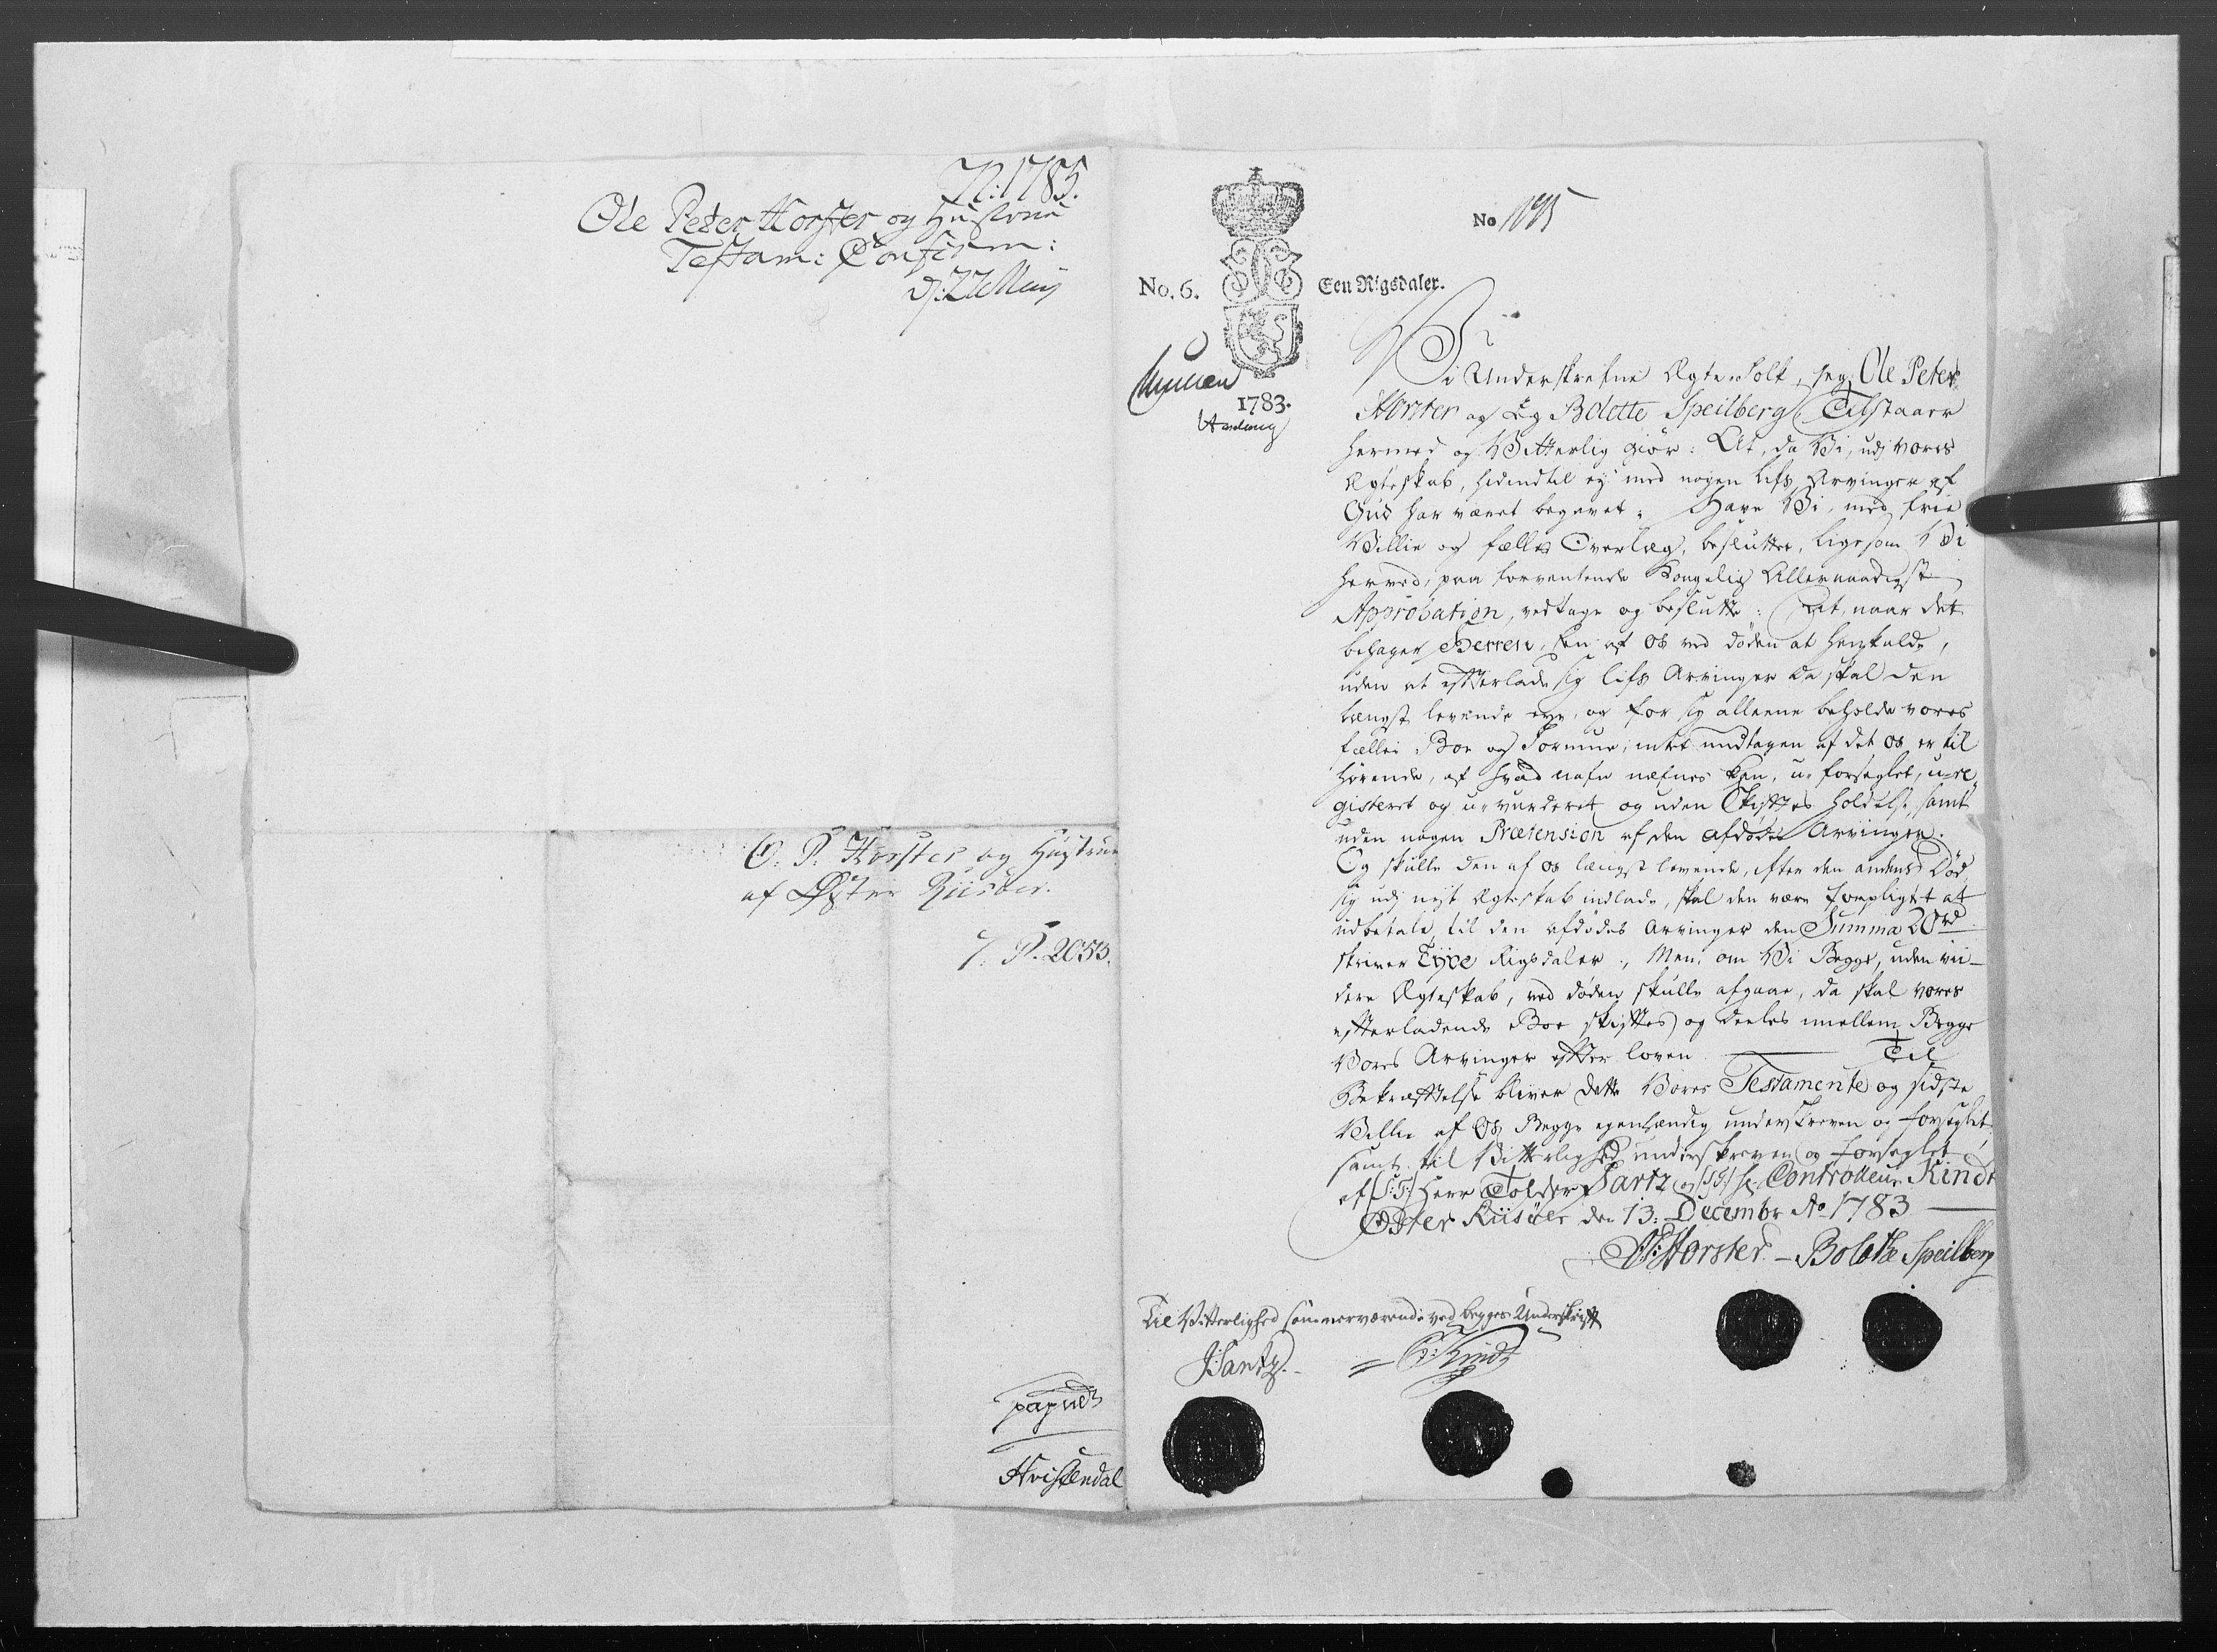 N: 1785.
Ole Peter Horster og Hustrue
Testam: Confirm:
d: 27 Maij
O. P. Horster og Hustrue
af Øster Riisöer.
7. P. 2053.
Hvistendal
No 1095
No. 6. Een Rigsdaler.
1783.
Vi Underskrefne Ægte-Folk, jeg Ole Peter
Horster og Eg Bolette Speilberg Tilstaaer
hermed og Vitterlig giør: At, da Vi, udj vores
Ægteskab, hidindtil ej med nogen Lifs Arvinger af
Gud har været begavet; Have Vi, med frie
Villie og fælles Overlæg, besluttet, ligesom Vi
herved, paa forventende Kongelig Allernaadigst
Approbation, vedtage og beslutte: At, naar det
behager Herren, Een af os ved døden at henkalde,
uden at efterlade sig Lifs Arvinger da skal den
længst levende eye, og for sig alleene beholde vores
fælles Boe og Formue, intet undtagen af det os er til
hørende, af hvad nafn næfnes kan, u-forseglet, u-re
gisteret og u-vurderet og uden Skiftes Holdelse, samt
uden nogen Prætension af den afdødes Arvinger.
Og skulle den af os længst levende, efter den andens Død,
sig udj nyt Ægteskab indlade, skal den være forpligtet at
udbetale til den afdødes Arvinger den Summa 20 rd
skriver Tyve Rigsdaler., Men, om Vi Begge, uden vii-
dere Ægteskab, ved døden skulle afgaae, da skal vores
efterladende Boe skiftes og deeles imellem Begge
Vores Arvinger efter loven. — Til
Bekræftelse bliver dette Vores Testamente og sidste
Villie af Os Begge egenhændig underskreven og forseglet,
samt til Vitterlighed underskreven og forseglet
af S:T: Herr Tolder Sartz og S:T: Hr. Controlleur Kindt
Öster Riisöer den 13: Decembr Ao 1783 —
OP: Horster. — Bolette Speilberg
Til Vitterlighed som nerværende ved begges Underskrift
J Sartz. = Kindt